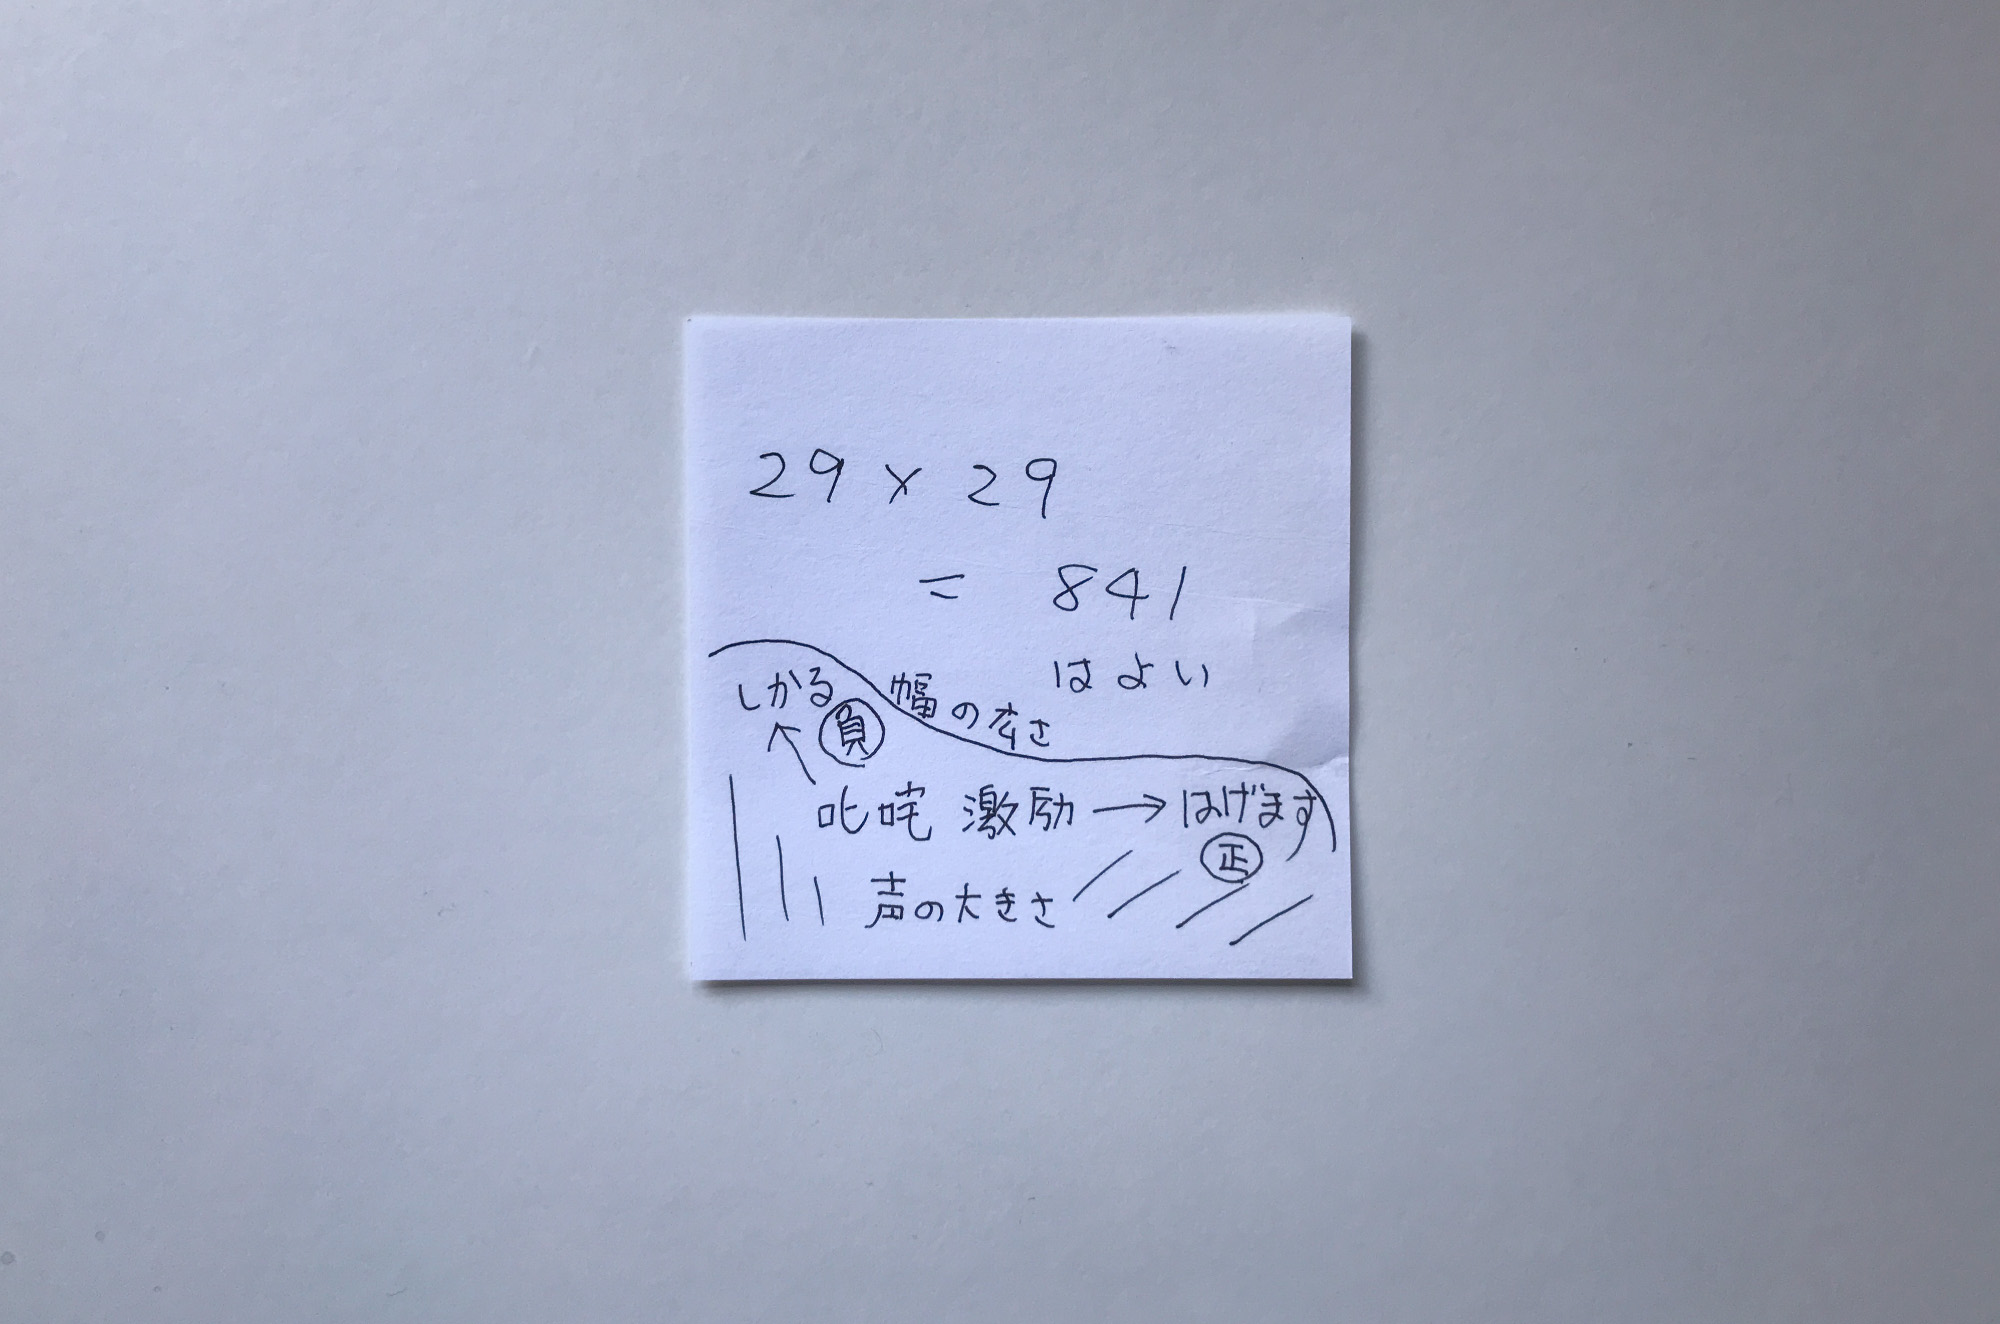 29 × 29
= 841
はよい
しかる 幅の広さ
負
叱咤 激励 → はげます
正
声の大きさ